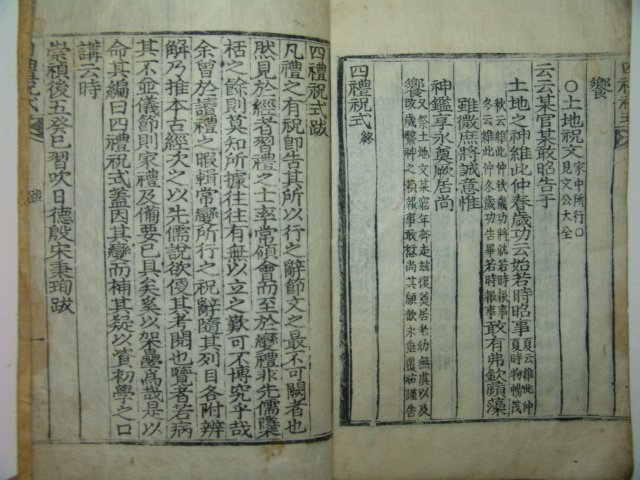 饗
○土地祝文家中所行○見文公大全
云云某官某敢昭告于
土地之神維此仲春歲功云始若時昭事夏云維此仲夏時物暢茂
秋云維此仲秋歲功將就若時報事冬云維此仲冬歲功告畢若時報事敢有弗欽蘋藻
雖微庶將誠意惟
神鑑享永奠厥居尚
饗
四禮祝式終
四禮祝式跋
凡禮之有祝卽告其所以行之辭節文之最不可闕者也
然見於經者習禮之士率常領會而至於變禮非先儒檃
栝之餘則莫知所據往往有無以立之歎可不博究乎哉
余曾於讀禮之暇輯常變所行之祝辭隨其列目各附辨
解乃推本古經次之以先儒說欲便其考閱也覽者若病
其不並儀節則家禮及備要已具矣奚以架疊爲哉是以
命其編曰四禮祝式蓋因其變而補其疑以資初學之口
講云時
崇禎後五癸巳習吹日德殷宋秉珣跋